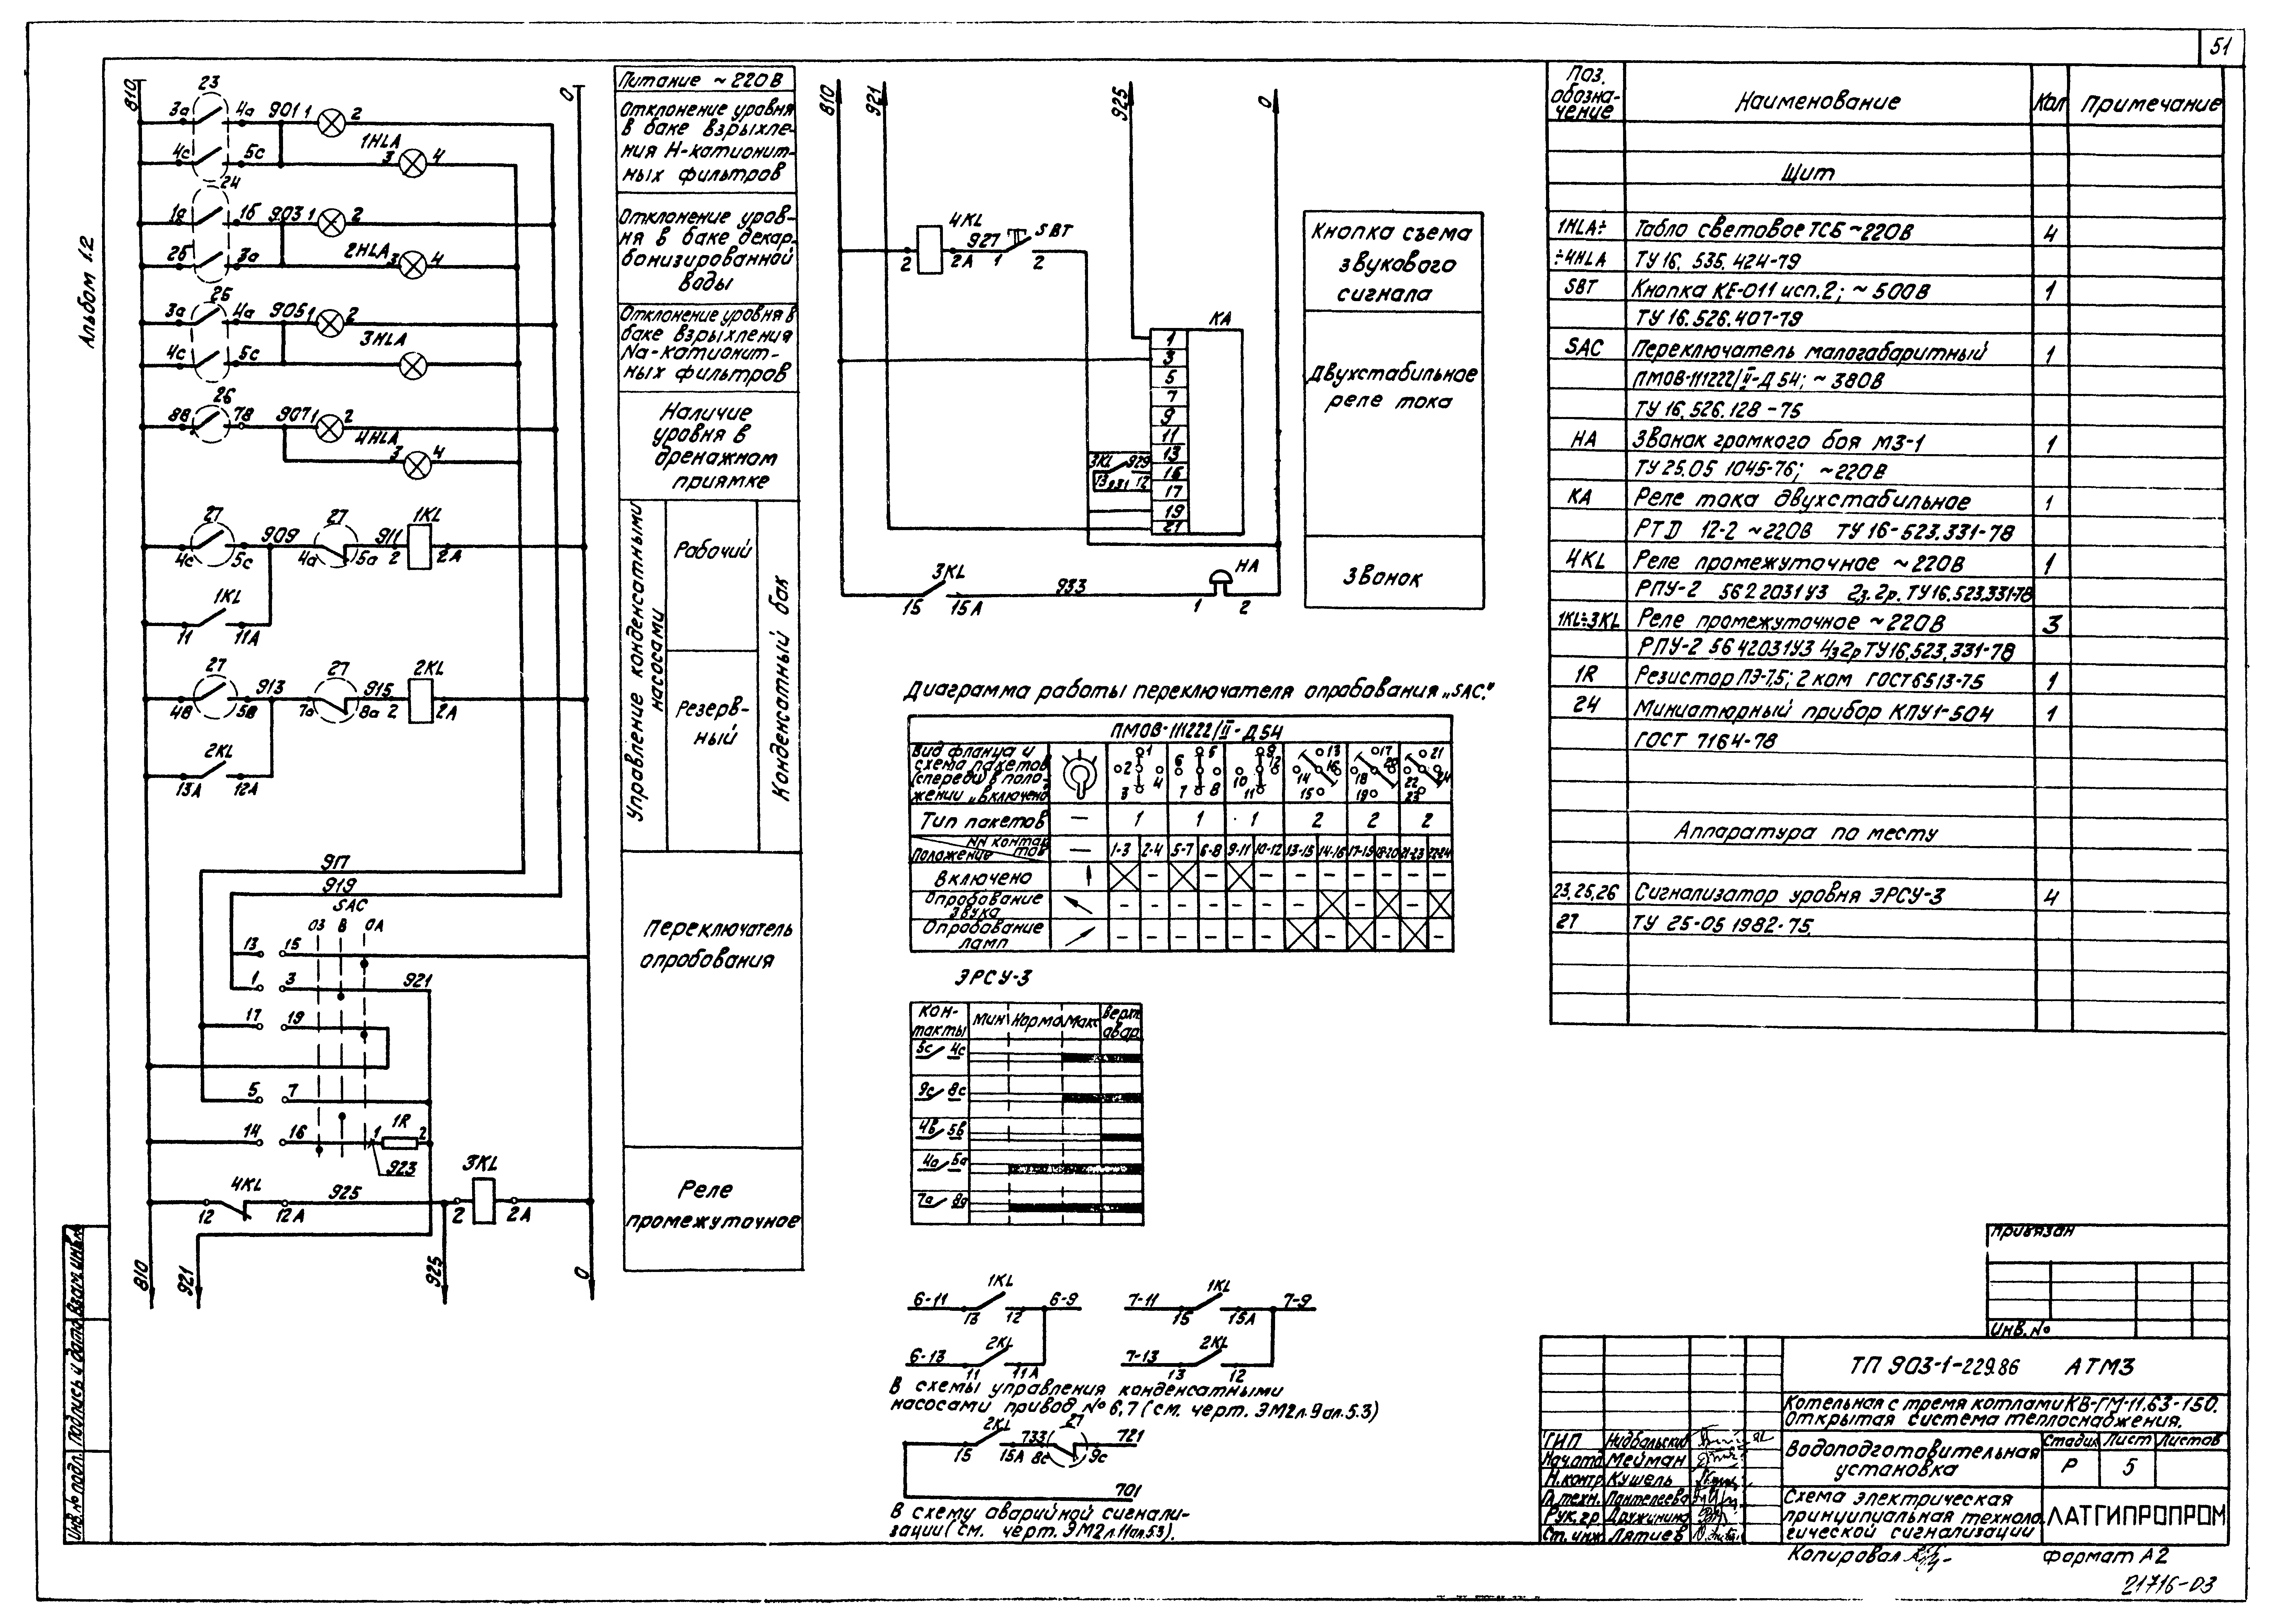 51
Альбом 1.2
810
0
23
3а
4а
901
1
2
1HLA
4с
5с
3
4
24
1а
1б
903
1
2
2HLA
2б
3а
3
4
25
3а
4а
905
1
2
3HLA
4с
5с
4
26
8в
7в
907
1
2
4HLA
3
4
27
909
27
911
1KL
4с
5с
4а
5а
2
2А
1KL
11
11А
27
913
27
915
2KL
4в
5в
7а
8а
2
2А
2KL
13А
12А
917
919
SAC
ОЗ
В
ОА
13
15
1
3
921
17
19
5
7
14
16
1
1R
2
923
4KL
925
3KL
12
12А
2
2А
810
921
925
0
Питание ~ 220В
Отклонение уровня
в баке взрыхле-
ния Н-катионит-
ных фильтров
Отклонение уров-
ня в баке декар-
бонизированной
воды
Отклонение уровня в
баке взрыхления
Na-катионит-
ных фильтров
Наличие
уровня в
дренажном
приямке
Управление конденсатными
насосами
Рабочий
Резерв-
ный
Конденсатный бак
Переключатель
опробования
Реле
промежуточное
810
921
925
0
4KL
927
SBT
2
2А
1
2
КА
1
3
5
7
9
11
13
16
17
19
21
3KL
929
13
931
12
3KL
933
НА
15
15А
1
2
Кнопка съема
звукового
сигнала
Двухстабильное
реле тока
Звонок
Диаграмма работы переключателя опробования „SAC."
ПМОВ-111222/II-Д54
Вид фланца и
схема пакетов
(спереди) в поло-
жении „Включено"
1
2
3
4
5
6
7
8
9
10
11
12
13
14
15
16
17
18
19
20
21
22
23
24
Тип пакетов — 1 1 1 2 2 2
NN контак-
тов
Положение — 1-3 2-4 5-7 6-8 9-11 10-12 13-15 14-16 17-19 18-20 21-23 22-24
Включено
Опробование
звука
Опробование
ламп
ЭРСУ-3
Кон-
такты
Мин Норма Макс Верх.
авар.
5с 4с
9с 8с
4в 5в
4а 5а
7а 8а
1KL
6-11
6-9
13
12
2KL
6-13
11
11А
1KL
7-11
7-9
15
15А
2KL
7-13
13
12
В схемы управления конденсатными
насосами привод №6,7 (см. черт. ЭМ2л.9 ал.5.3)
2KL
27
733
721
15
15А
8с
9с
701
В схему аварийной сигнали-
зации (см. черт. ЭМ2л.11ал.5.3).
Поз.
обозна-
чение
Наименование
Кол
Примечание
Щит
1HLA÷ Табло световое ТСБ ~220В 4
÷4HLA ТУ 16. 535. 424-79
SBT Кнопка КЕ-011 исп.2; ~ 500В 1
ТУ 16.526.407-79
SAC Переключатель малогабаритный 1
ПМОВ-111222/II-Д54; ~ 380В
ТУ 16.526.128-75
НА Звонок громкого боя МЗ-1 1
ТУ 25.05 1045-76; ~220В
КА Реле тока двухстабильное 1
РТД 12-2 ~220В ТУ 16-523.331-78
4KL Реле промежуточное ~220В 1
РПУ-2 562 2031У3 2з.2р. ТУ16.523.331-78
1KL÷3KL Реле промежуточное ~220В 3
РПУ-2 56 42031У3 4з2р ТУ16.523.331-78
1R Резистор ПЭ-7,5; 2 ком ГОСТ 6513-75 1
24 Миниатюрный прибор КПУ1-504 1
ГОСТ 7164-78
Аппаратура по месту
23,25,26 Сигнализатор уровня ЭРСУ-3 4
27 ТУ 25-05 1982-75.
Привязан
Инв.№
ТП 903-1-229.86 АТМ3
Котельная с тремя котлами КВ-ГМ-11.63-150.
Открытая система теплоснабжения.
ГИП Нидбальский
Нач.отд Мейман
Н.контр Кушель
Гл.техн. Пантелеева
Рук.гр. Дружинина
Ст.инж. Лятиев
Водоподготовительная
установка
Стадия Лист Листов
Р 5
Схема электрическая
принципиальная техноло-
гической сигнализации
ЛАТГИПРОПРОМ
Копировал
Формат А2
21716-03
Инв.№ подл. Подпись и дата Взам.инв.№